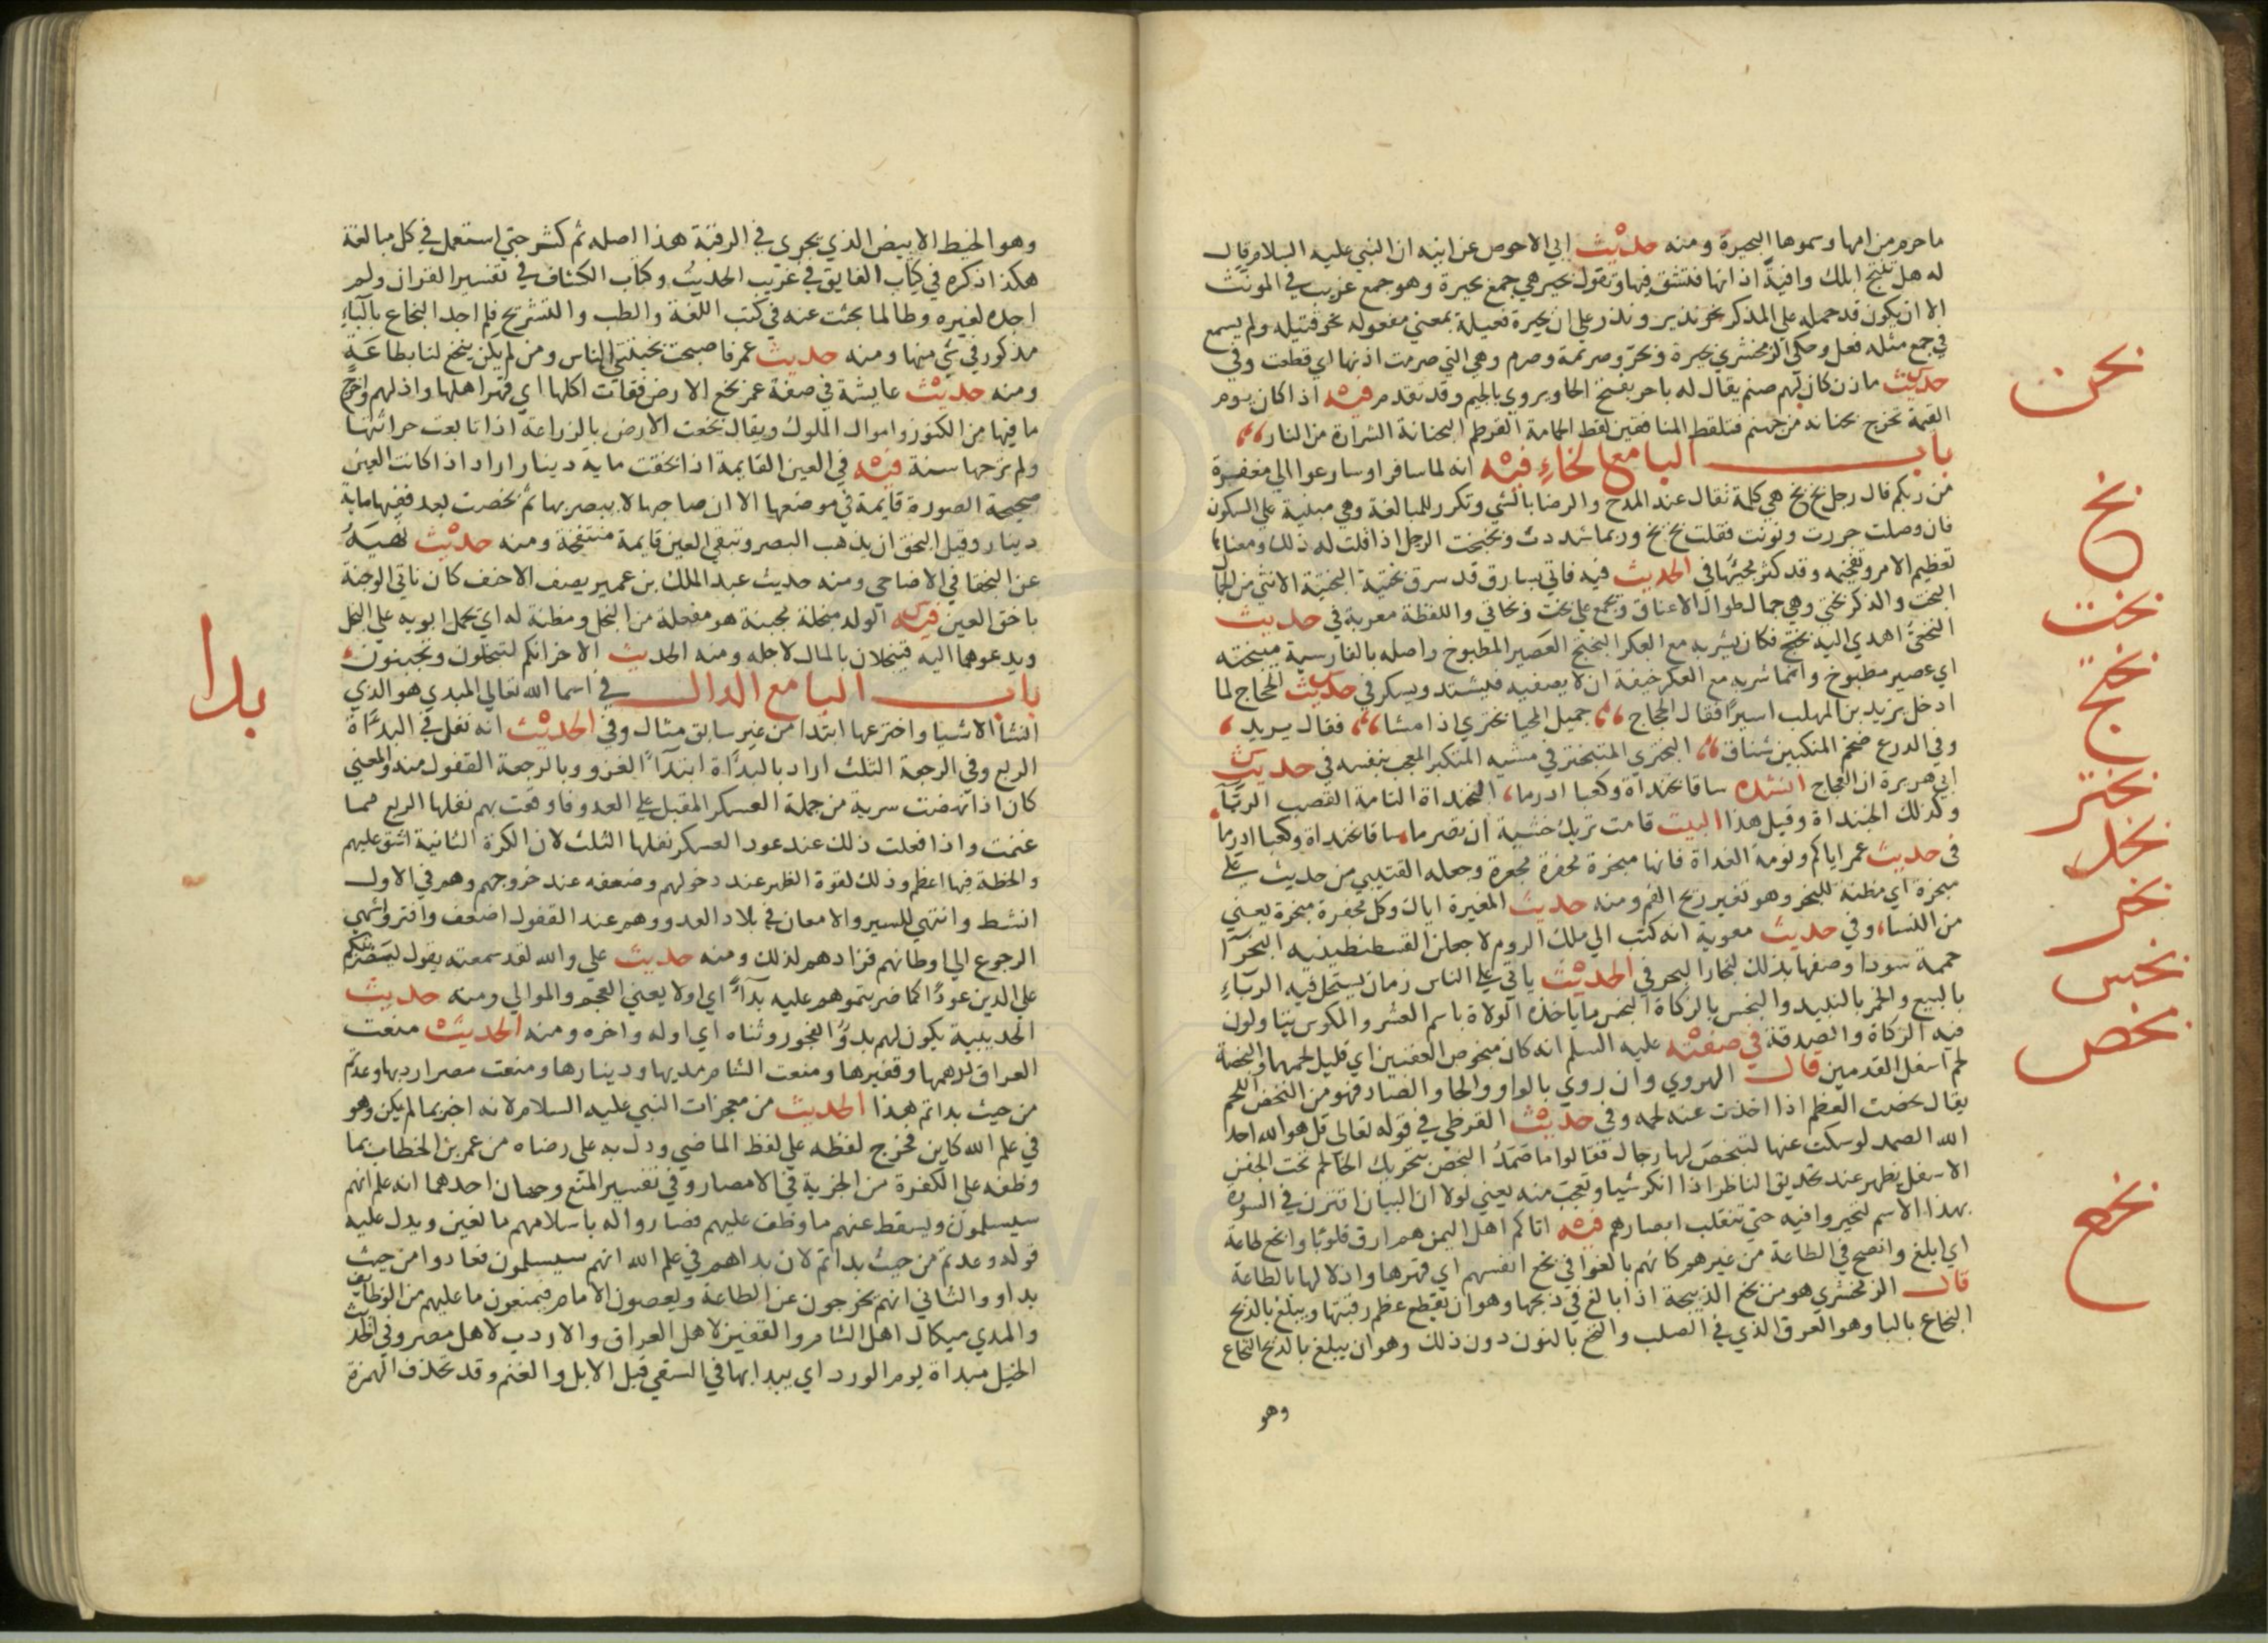 ما حرم من امها وسموها البحيرة ومنه حديث ابي الاحوص عن ابيه ان النبي عليه السلام قال
له هل تنتج ابلك وافية اذانها فتشق فيها وتقول بحر هي جمع بحيرة وهو جمع غريب في المونث
الا ان يكون قد حمله علي المذكر نحو نذير ونذر علي ان بحيرة فعيلة بمعني مفعولة نحو قتيله ولم يسمع
في جمع مثله فعل وحكي الزمخشري بحيرة وبحر وصريمة وصرم وهي التي صرمت اذنها اي قطعت وفي
حديث مازن كان لهم صنم يقال له باحر بفتح الحا ويروي بالجيم وقد تقدم فيه اذا كان يوم
القيمة تخرج بحنانة من جهنم فتلقط المنافقين لقط الحمامة القرطم البحنانة الشرارة من النار
باب البا مع الخاء فيه انه لما سافر او سارعوا الي مغفرة
من ربكم قال رجل بخ بخ هي كلمة تقال عند المدح والرضا بالشي وتكرر للمبالغة وهي مبنية علي السكون
فان وصلت جررت ونونت فقلت بخ بخ وربما شددت وبخبخت الرجل اذا قلت له ذلك ومعناها
تعظيم الامر وتفخيمه وقد كثر مجيئها في الحديث فيه فاتي بسارق قد سرق بختية البختية الانثي من الجمال
البخت والذكر بختي وهي جمال طوال الاعناق وتجمع علي بخت وبخاتي واللفظة معربة في حديث
النخعي اهدي اليه بختج فكان يشربه مع العكر البختج العصير المطبوخ واصله بالفارسية ميبخته
اي عصير مطبوخ وانما شربه مع العكر خيفة ان لا يصفيه فيشتد ويسكر في حديث الحجاج لما
ادخل يزيد بن المهلب اسيرا فقال الحجاج جميل المحيا بختري اذا مشا فقال يزيد
وفي الدرع ضخم المنكبين شناق البختري المتبختر في مشيه المتكبر المعجب بنفسه في حديث
ابي هريرة ان العجاج انشده ساقا بخنداة وكعبا ادرما البخنداة التامة القصب الريا
وكذلك الخبنداة وقبل هذا البيت قامت تريك خشية ان تصرما ساقا بخنداة وكعبا ادرما
في حديث عمر اياكم ونومة الغداة فانها مبخرة مجفرة مجعرة وجعله القتيبي من حديث علي
مبخرة اي مظنة للبخر وهو تغير ريح الفم ومنه حديث المغيرة اياك وكل مجفرة مبخرة يعني
من النسا، وفي حديث معوية انه كتب الي ملك الروم لاجعلن القسطنطينيه البخرا
حممة سودا وصفها بذلك لبخار البحر في الحديث ياتي علي الناس زمان يستحل فيه الرباء
بالبيع والخمر بالنبيذ والبخس بالزكاة البخس ما ياخذه الولاة باسم العشر والمكوس يتاولون
فيه الزكاة والصدقة في صفته عليه السلم انه كان مبخوص العقبين اي قليل لحمهما والبخصة
لحم اسفل القدمين قال الهروي وان روي بالواو والحا والضاد فهو من النحض اللحم
يقال نحضت العظم اذا اخذت عنه لحمه وفي حديث القرظي في قوله تعالي قل هو الله احد
الله الصمد لو سكت عنها لتبخص لها رجال فقالوا ما صمد البخص بتحريك الخا لحم تحت الجفن
الاسفل يظهر عند تحديق الناظر اذا انكر شيا وتعجب منه يعني لولا ان البيان اقترن في السورة
بهذا الاسم لتحيروا فيه حتي تنقلب ابصارهم فيه اتاكم اهل اليمن هم ارق قلوبا وابخع طاعة
اي ابلغ وانصح في الطاعة من غيرهم كانهم بالغوا في بخع انفسهم اي قهرها واذلالها بالطاعة
قال الزمخشري هو من بخع الذبيحة اذا بالغ في ذبحها وهو ان يقطع عظم رقبتها ويبلغ بالذبح
البخاع بالبا وهو العرق الذي في الصلب والنخع بالنون دون ذلك وهو ان يبلغ بالذبح النخاع
وهو
بحن
بخ
بخت
بختج
بختر
بخد
بخر
بخس
بخص
بخع
وهو الخيط الابيض الذي يجري في الرقبة هذا اصله ثم كثر حتي استعمل في كل مبالغة
هكذا ذكره في كتاب الفايق في غريب الحديث وكتاب الكشاف في تفسير القران ولم
اجده لغيره وطالما بحثت عنه في كتب اللغة والطب والتشريح فلم اجد البخاع بالباء
مذكور في شي منها ومنه حديث عمر فاصبحت يجنبني الناس ومن لم يكن يبخع لنا بطاعة
ومنه حديث عايشة في صفة عمر بخع الارض فقات اكلها اي قهر اهلها واذلهم واخرج
ما فيها من الكنوز واموال الملوك ويقال بخعت الارض بالزراعة اذا تابعت حراثتها
ولم ترحها سنة فيه في العين القايمة اذا بخقت ماية دينار اراد اذا كانت العين
صحيحة الصورة قايمة في موضعها الا ان صاحبها لا يبصر بها ثم بخصت بعد ففيها ماية
دينار وقيل البخق ان يذهب البصر وتبقي العين قايمة منفتحة ومنه حديث نهيه
عن البخقا في الاضاحي ومنه حديث عبد الملك بن عمير يصف الاحنف كان ناتي الوجنة
باخق العين فيه الولد مبخلة مجبنة هو مفعلة من البخل ومظنة له اي يحمل ابويه علي البخل
ويدعوهما اليه فيبخلان بالمال لاجله ومنه الحديث الاخر انكم لتبخلون وتجبنون
باب البا مع الدال في اسما الله تعالي المبدي هو الذي
انشأ الاشيا واخترعها ابتدا من غير سابق مثال وفي الحديث انه نفل في البدأة
الربع وفي الرجعة الثلث اراد بالبدأة ابتدآ الغزو وبالرجعة القفول منه والمعني
كان اذا نهضت سرية من جملة العسكر المقبل علي العدو فاوقعت بهم نفلها الربع مما
غنمت واذا فعلت ذلك عند عود العسكر نفلها الثلث لان الكرة الثانية اشق عليهم
والخطة فيها اعظم وذلك لقوة الظهر عند دخولهم وضعفه عند خروجهم وهم في الاول
انشط واشهي للسير والامعان في بلاد العدو وهم عند القفول اضعف وافتر واشهي
الرجوع الي اوطانهم فزادهم لذلك ومنه حديث علي والله لقد سمعته يقول ليضربنكم
علي الدين عودا كما ضربتموهم عليه بدآ اي اولا يعني العجم والموالي ومنه حديث
الحديبية يكون لهم بدو الفجور وثناه اي اوله واخره ومنه الحديث منعت
العراق درهمها وقفيزها ومنعت الشام مديها ودينارها ومنعت مصر اردبها وعدتم
من حيث بداتم هذا الحديث من معجزات النبي عليه السلام لانه اخبر بما لم يكن وهو
في علم الله كاين فخرج لفظه علي لفظ الماضي ودل به علي رضاه من عمر بن الخطاب بما
وظفه علي الكفرة من الجزية في الامصار وفي تفسير المنع وجهان احدهما انه علم انهم
سيسلمون ويسقط عنهم ما وظف عليهم فصاروا له باسلامهم مانعين ويدل عليه
قوله وعدتم من حيث بداتم لان بداهم في علم الله انهم سيسلمون فعادوا من حيث
بداو والثاني انهم يخرجون عن الطاعة ويعصون الامام فيمنعون ما عليهم من الوظايف
والمدي ميكال اهل الشام والقفيز لاهل العراق والاردب لاهل مصر وفي الحديث
الخيل مبداة يوم الورد اي يبدا بها في السقي قبل الابل والغنم وقد تحذف الهمزة
بدا